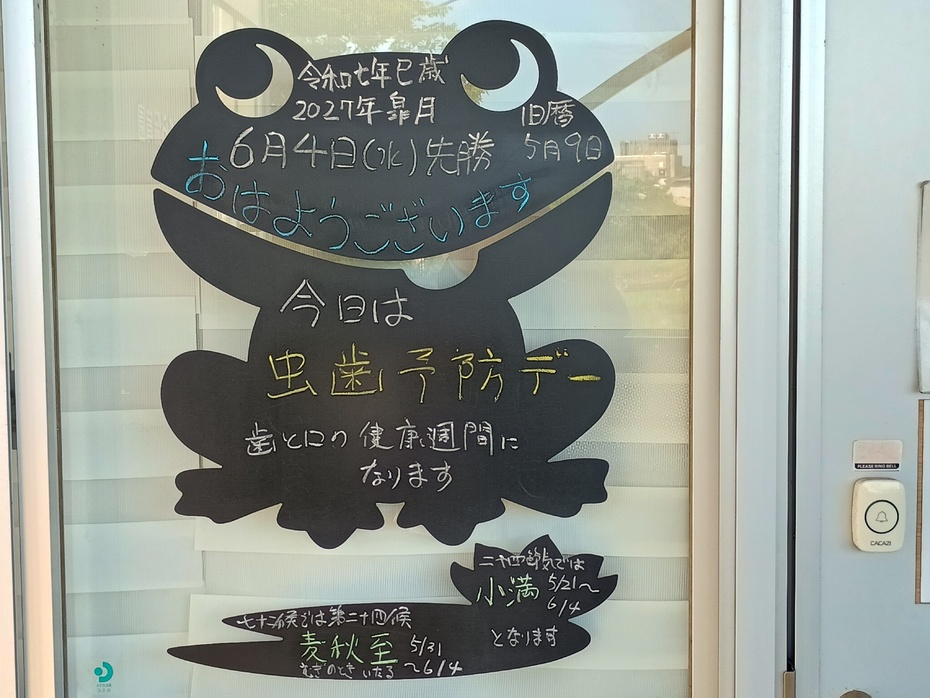 令和七年巳歳
2027年皐月
旧暦
6月4日(水)先勝
5月9日
おはようございます
今日は
虫歯予防デー
歯と口の健康週間に
なります
二十四節気では
小満 5/21〜
6/4
となります
七十二候では第二十四候
麦秋至 5/31
むぎのとき いたる 〜6/4
PLEASE RING BELL
CACAZI